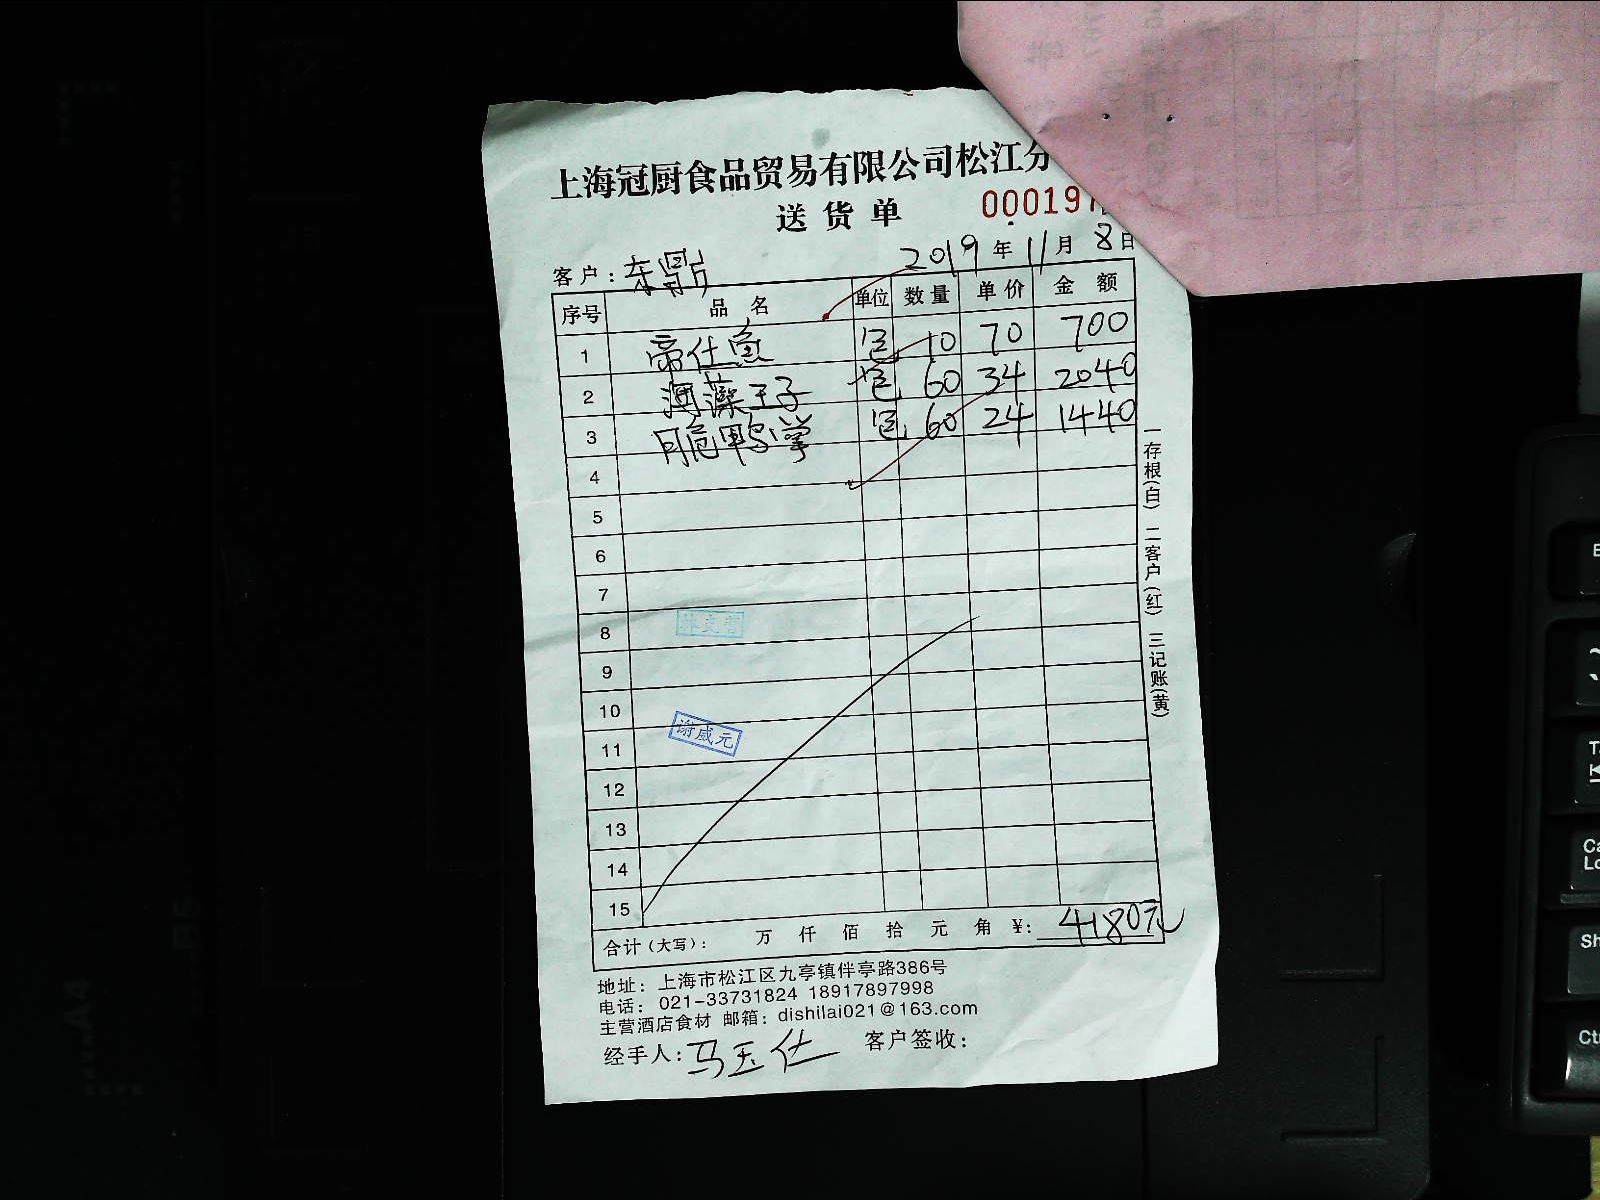 上海冠厨食品贸易有限公司松江分
送货单 000197
客户：东鼎 2019年11月8日
序号 品名 单位 数量 单价 金额
1 帝仕鱼 包 10 70 700
2 海藻王子 包 60 34 2040
3 脆鸭掌 包 60 24 1440
4
5
6
7
8
9
10
11 谢咸元
12
13
14
15
合计（大写）： 万 仟 佰 拾 元 角 ¥：4180元
地址：上海市松江区九亭镇伴亭路386号
电话：021-33731824 18917897998
主营酒店食材 邮箱：dishilai021@163.com
经手人：马玉仕 客户签收：
一存根(白) 二客户(红) 三记账(黄)